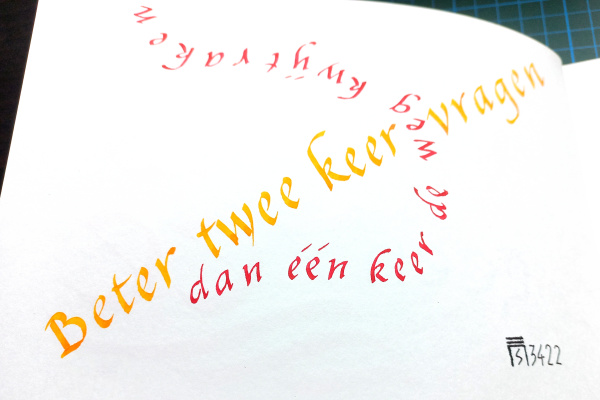 Beter twee keer vragen
dan één keer de weg kwijtraken
3422